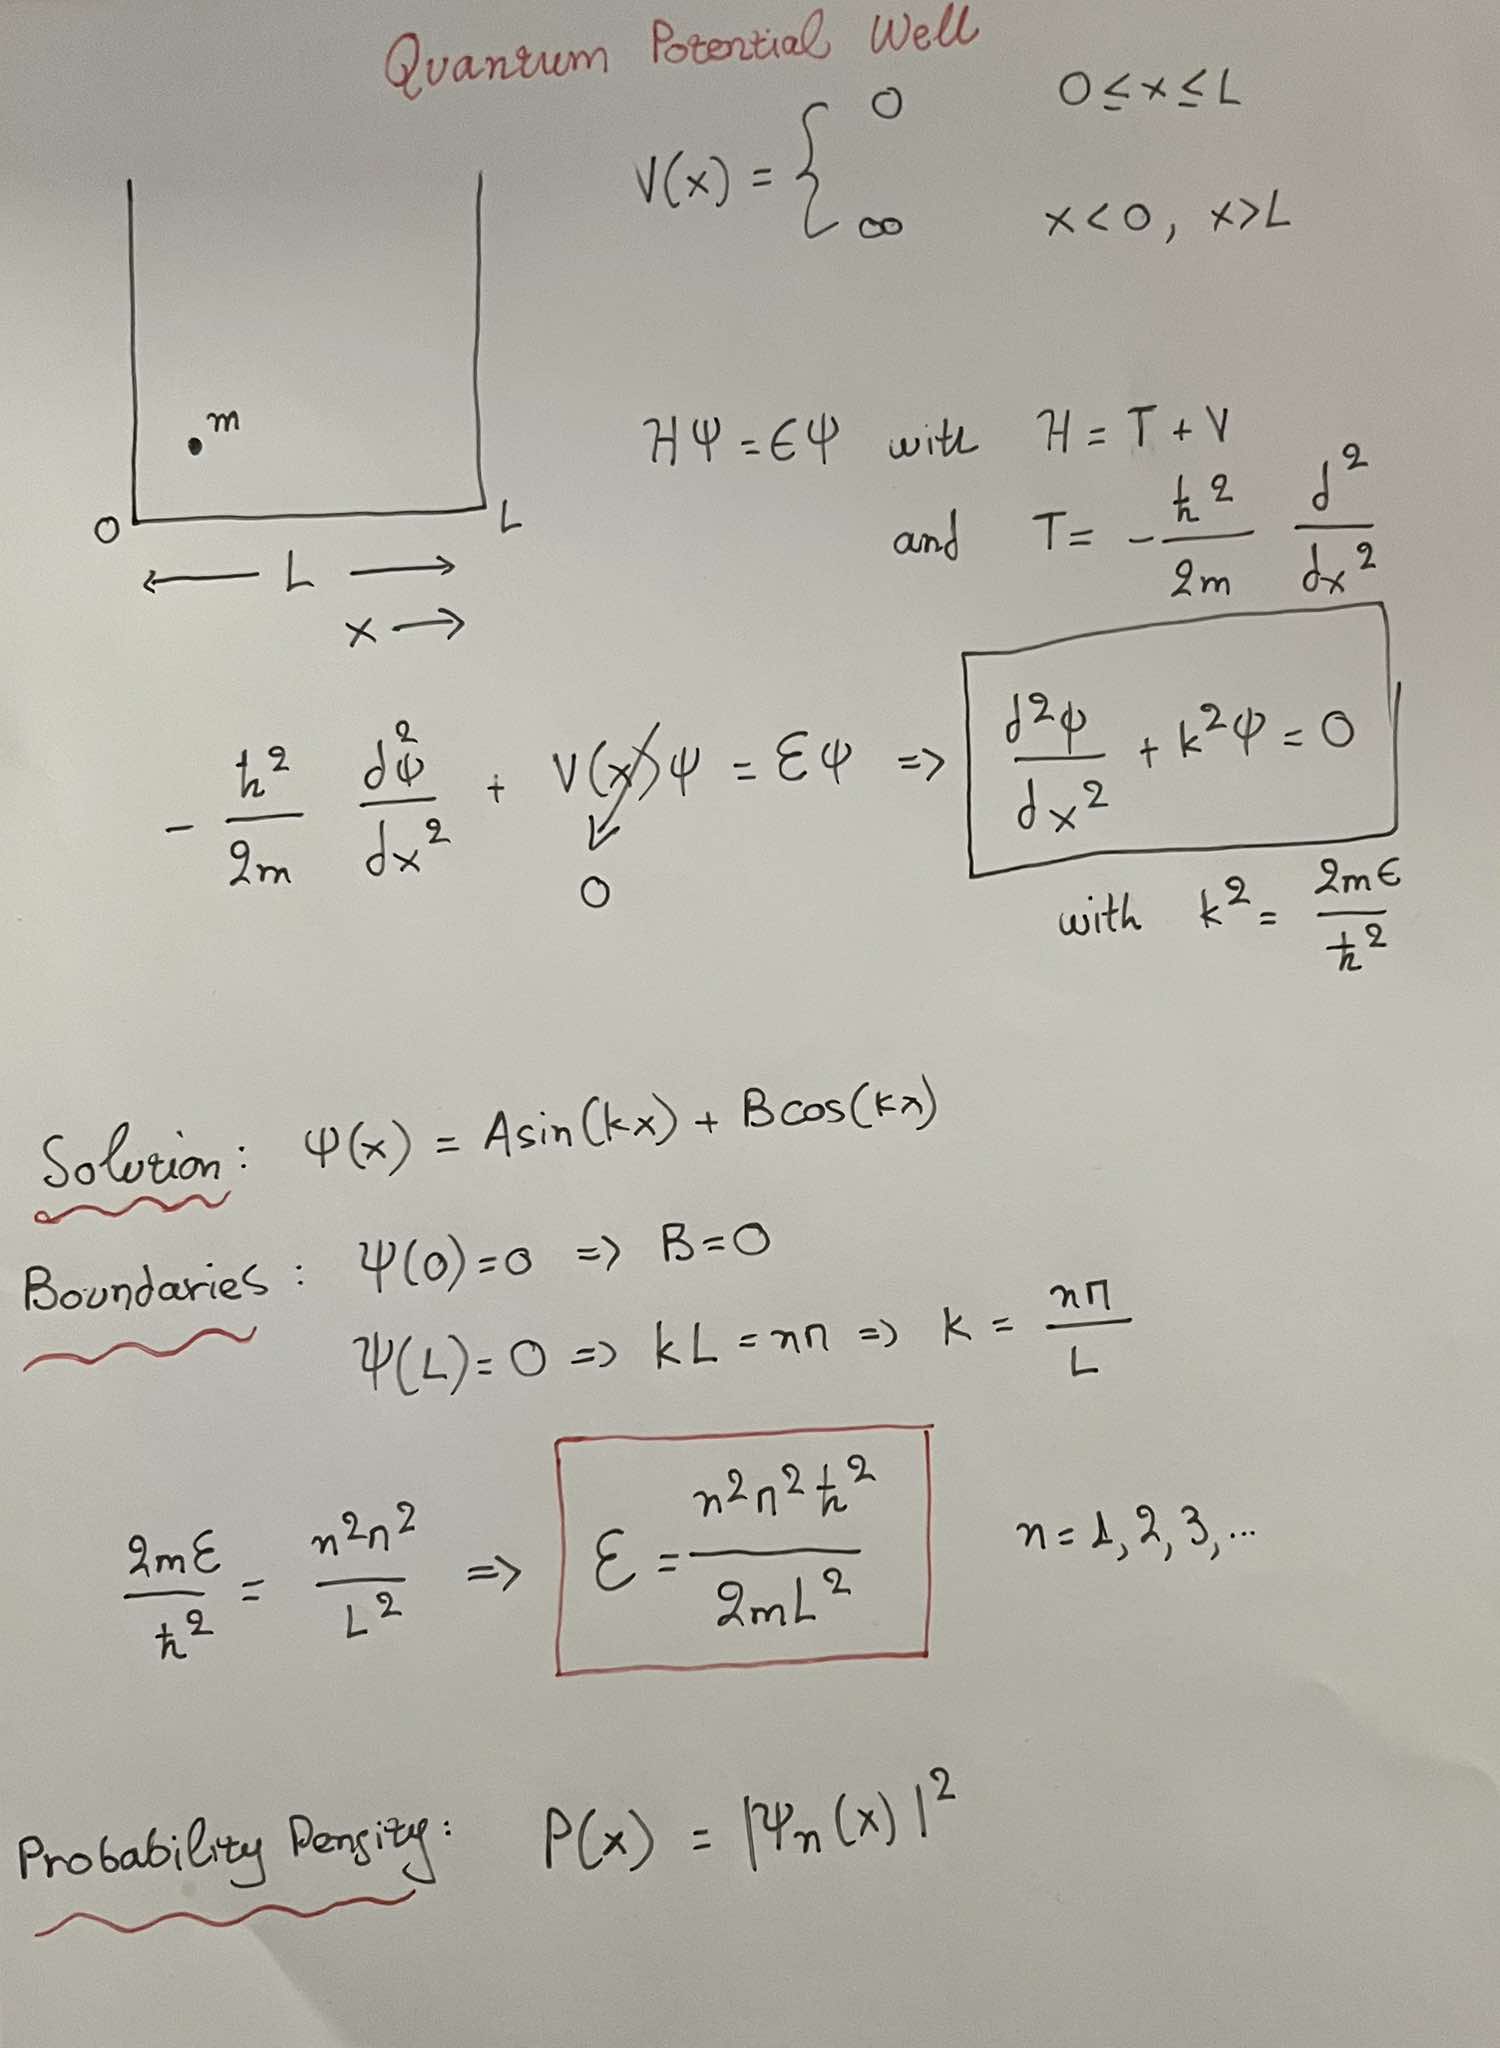 Quantum Potential Well
V(x) = { 0 0≤x≤L
∞ x<0, x>L
m
O
L
← L →
x →
HΨ = εΨ with H = T + V
and T = - ħ²/2m d²/dx²
- ħ²/2m d²ψ/dx² + V(x)ψ = εψ => d²ψ/dx² + k²ψ = 0
0
with k² = 2mε/ħ²
Solution: ψ(x) = Asin(kx) + Bcos(kx)
Boundaries: Ψ(0)=0 => B=0
Ψ(L)=0 => kL = nπ => k = nπ/L
2mε/ħ² = n²π²/L² => ε = n²π²ħ²/2mL² n = 1, 2, 3, ...
Probability Density: P(x) = |Ψn(x)|²